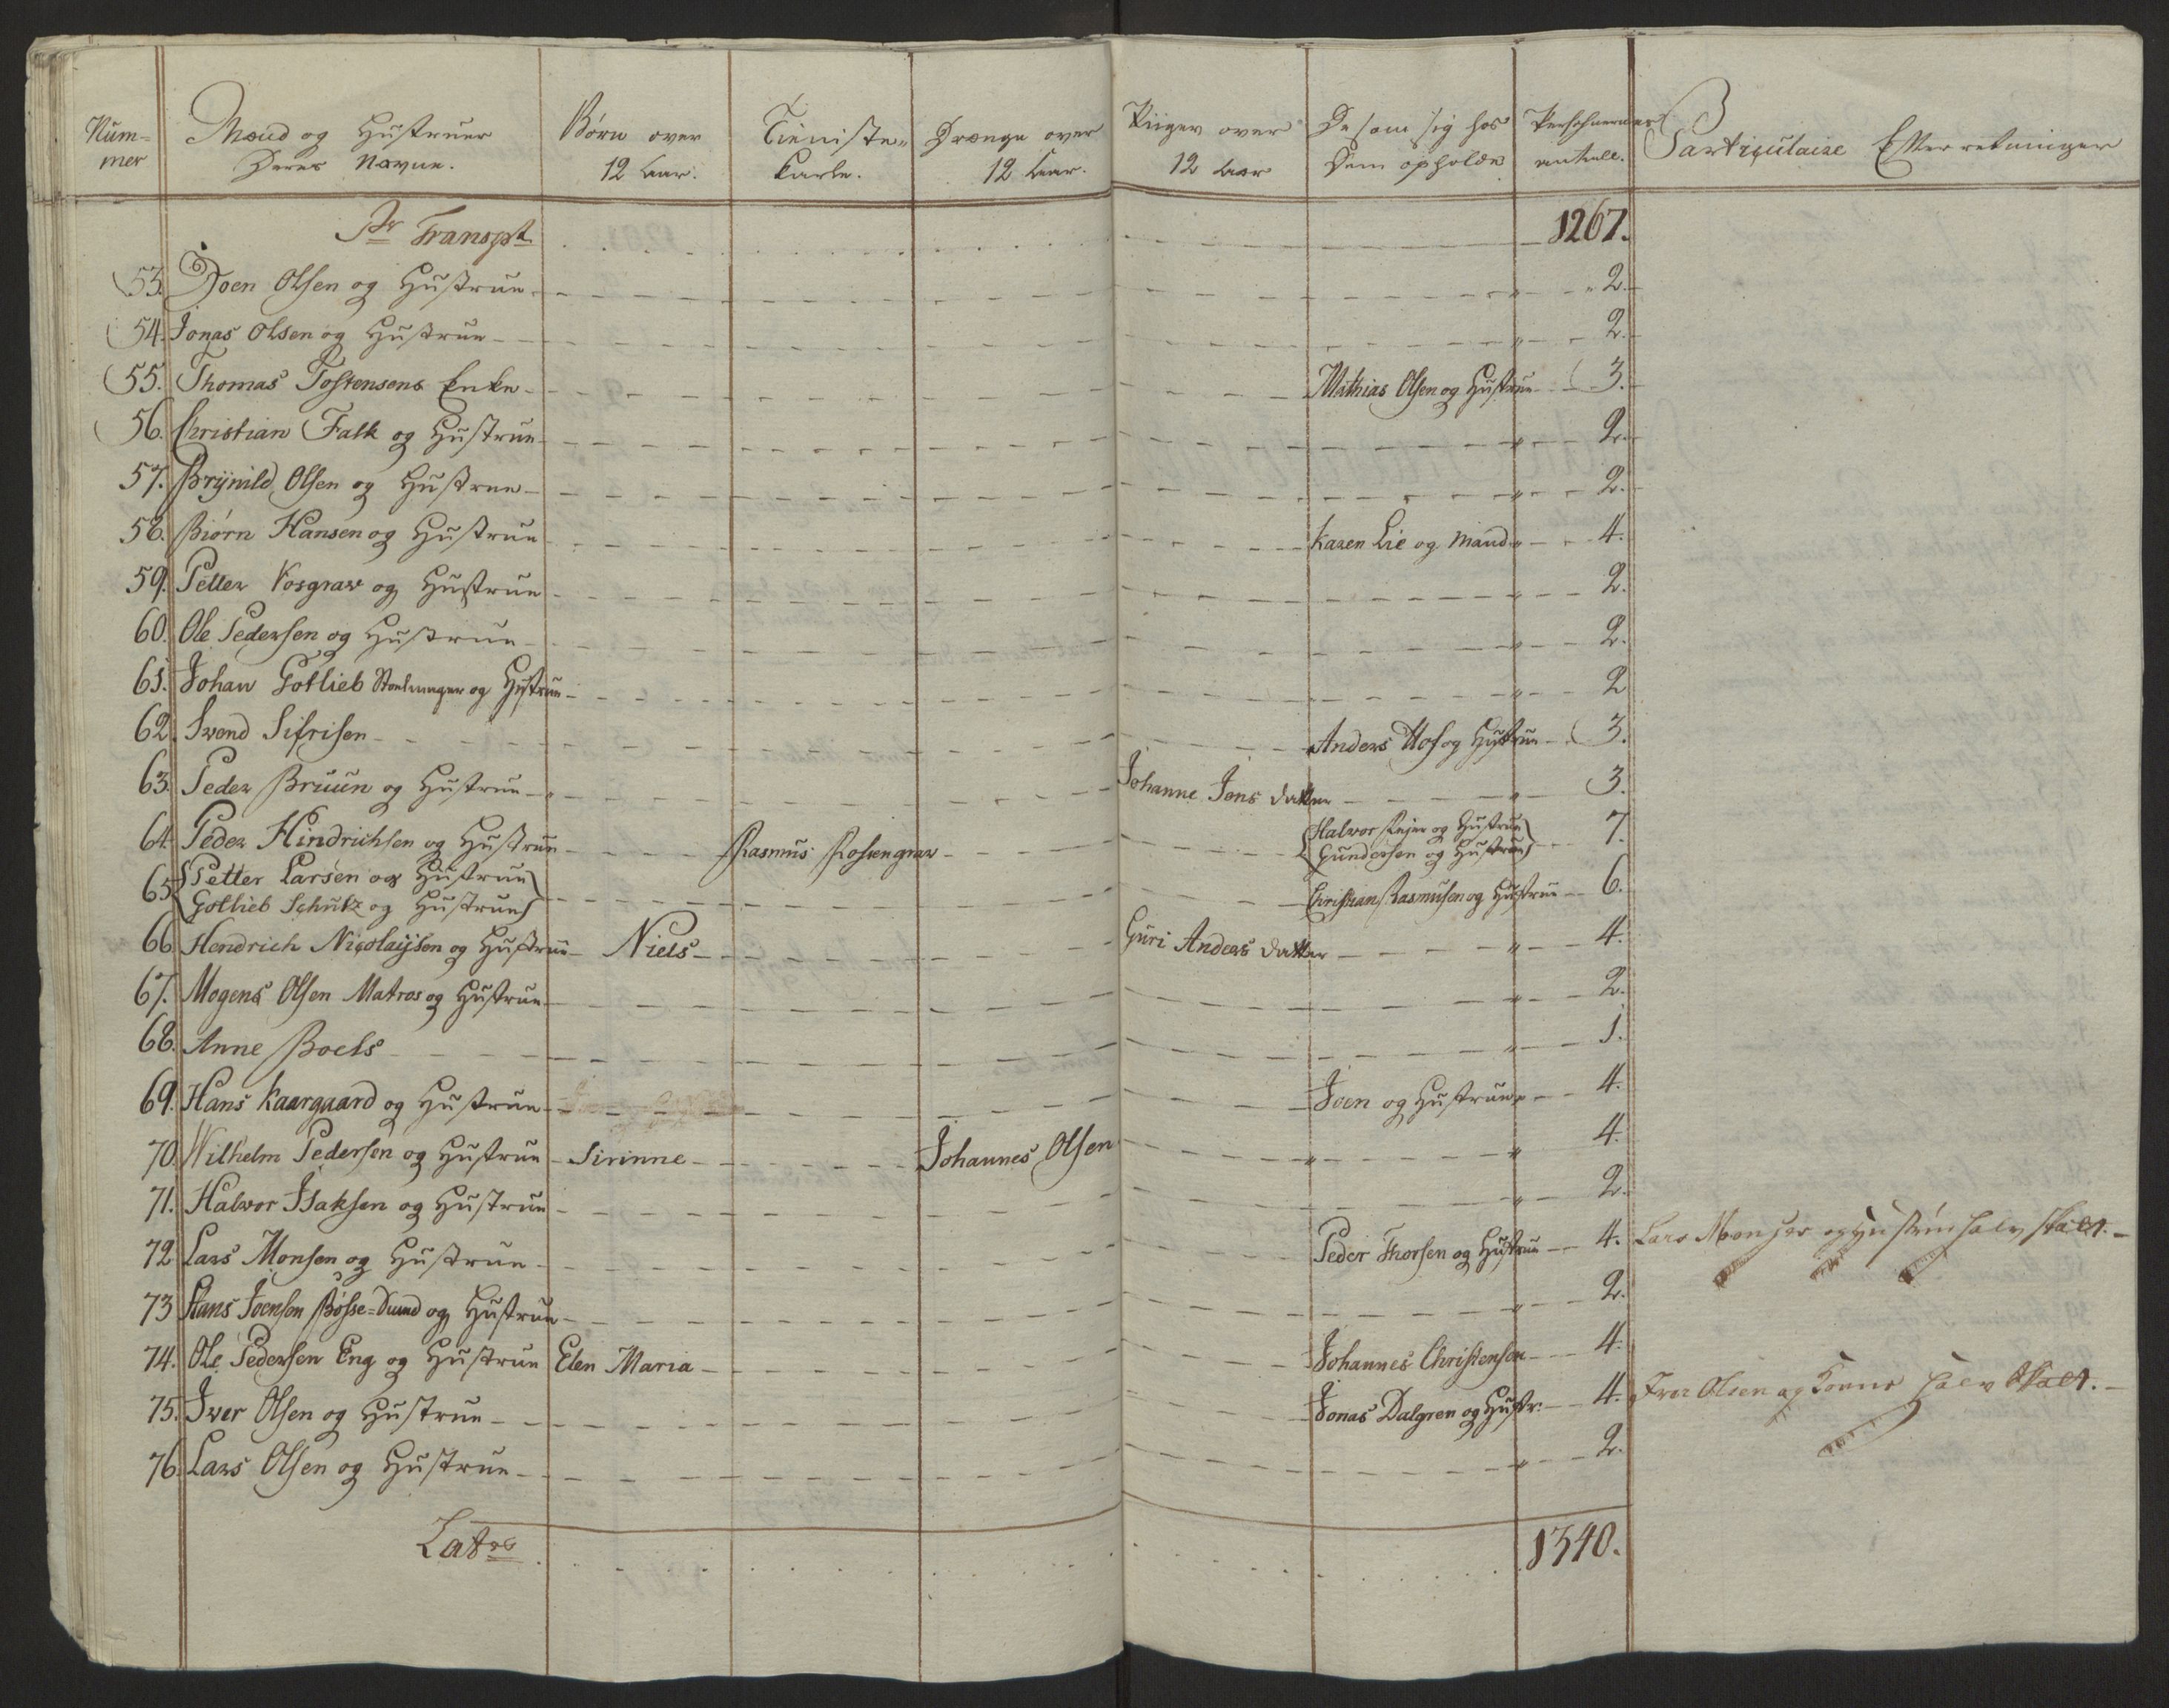 Num= mer | Mænd og Hustruer Deres Navne. | Børn over 12 Aar. | Tieniste Karle. | Drænge over 12 Aar. | Piiger over 12 Aar | De som sig hos Dem opholde | Persohnernes antall. | Particulaire Efterretninger
Pr Transpt 1267.
53. Joen Olsen og Hustrue 2.
54. Jonas Olsen og Hustrue 2.
55. Thomas Tostensens Enke Mathias Olsen og Hustrue 3.
56. Christian Falk og Hustrue 2.
57. Brynild Olsen og Hustrue 2.
58. Biørn Hansen og Hustrue Karen Lie og Mand 4.
59. Petter Vosgrav og Hustrue 2.
60. Ole Pedersen og Hustrue 2.
61. Johan Gotlieb og Hustrue 2
62. Svend Sifrisen Anders Hof og Hustrue 3.
63. Peder Bruun og Hustrue Johanne Jens datter 3.
64. Peder Hindrichsen og Hustrue Rasmus Rosengrav Halvor og Hustrue 7.
Gundersen og Hustrue
65 Petter Larsen og Hustrue Christian Rasmusen og Hustrue 6.
Gotlieb Schultz og Hustrue
66 Hendrich Nicolaijsen og Hustrue Niels Guri Anders datter 4.
67. Mogens Olsen Matros og Hustrue 2.
68. Anne Boels 1.
69. Hans Kaargaard og Hustrue Joen og Hustrue 4.
70. Wilhelm Pedersen og Hustrue Sirinne Johannes Olsen 4.
71. Halvor Isaksen og Hustrue 2.
72 Lars Monsen og Hustrue Peder Thorsen og Hustrue 4. Lars Monsen og Hustrue halv skat.
73 Hans Joensen Bøsse=Svend og Hustrue 2.
74. Ole Pedersen Eng og Hustrue Elen Maria Johannes Christensen 4.
75. Iver Olsen og Hustrue Jonas Dalgren og Hustr: 4. Iver Olsen og Konne halv Skat.
76. Lars Olsen og Hustrue 2.
Latus 1340.